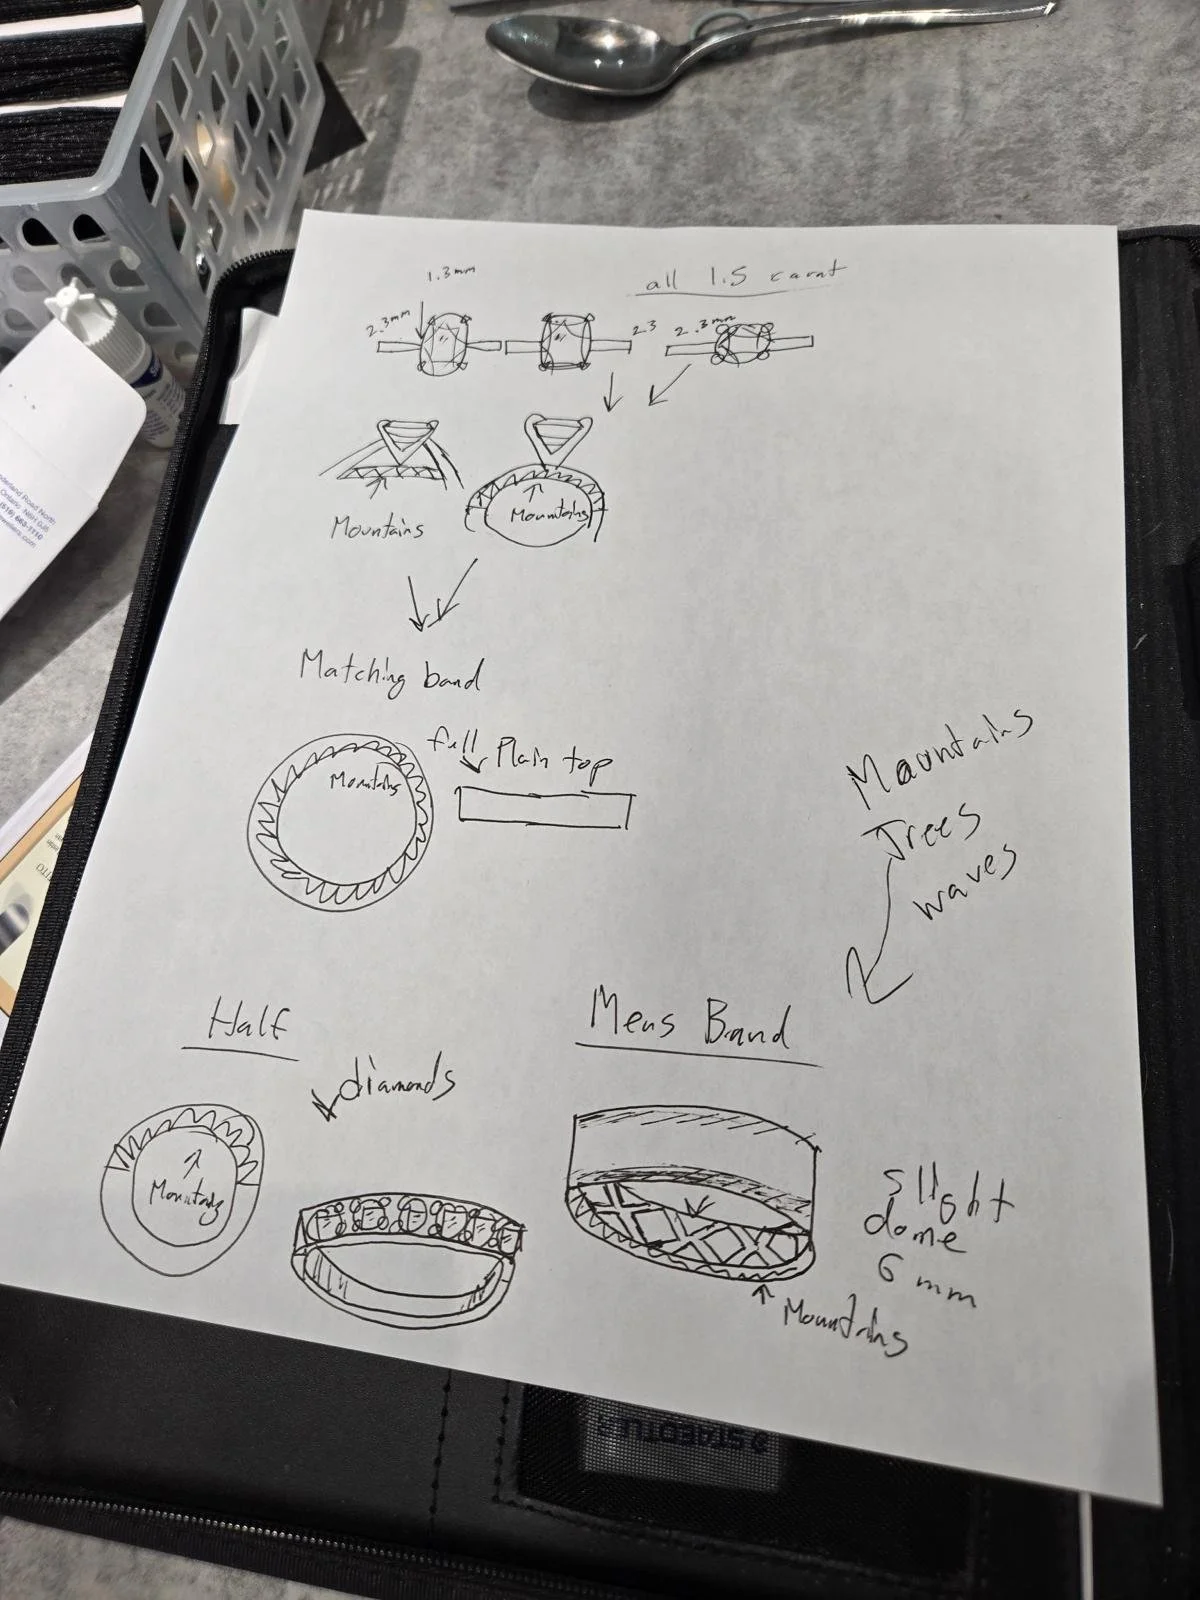 1.3mm
all 1.5 carat
2.3mm
2.3
2.3mm
Mountains
Mountains
Matching band
full
Plain top
Mountains
Mountains
Trees
waves
Half
diamonds
Mens Band
Mountains
slight
dome
6 mm
Mountains
Road North
Ontario N6H 0J6
(519) 663-1110
STAEDTLER